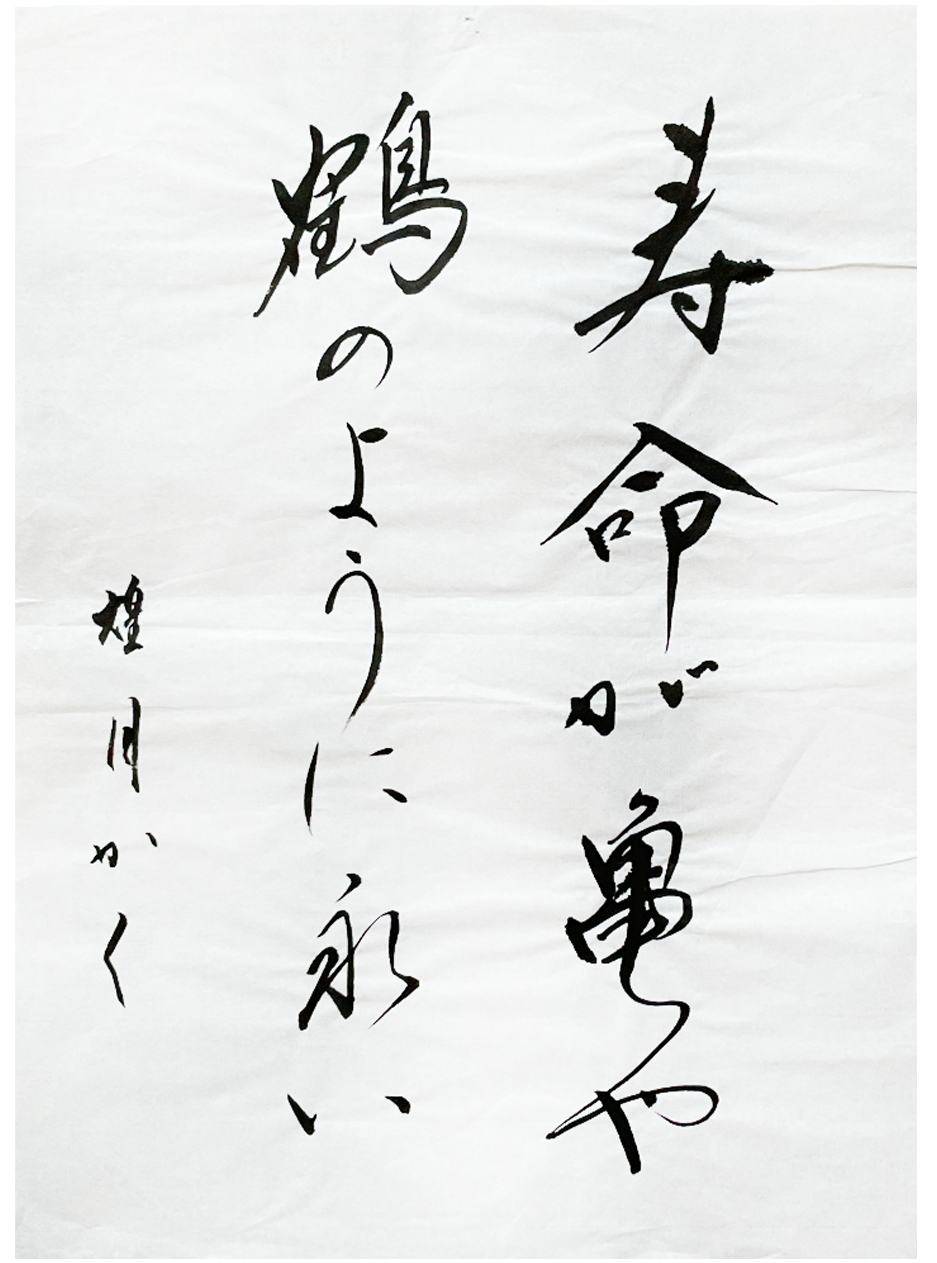 寿命が亀や
鶴のように永い
煌月かく